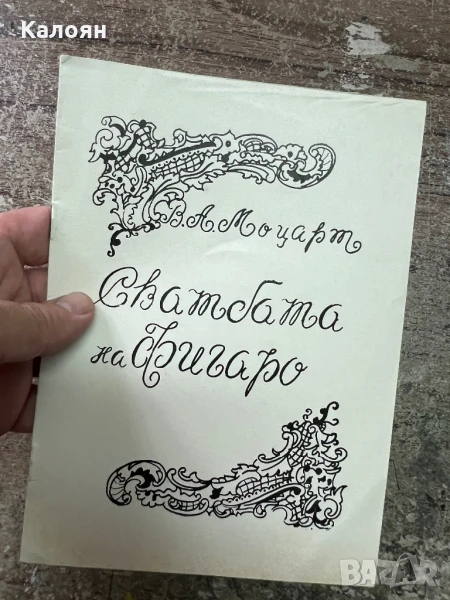 Калоян
В. А. Моцарт
Сватбата
на Фигаро
BAZAR